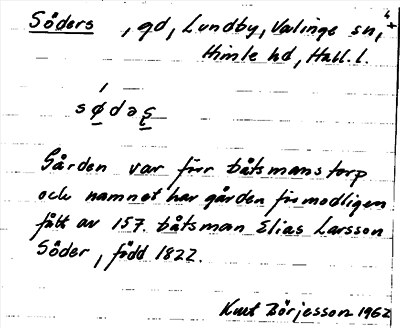 Söders, gd, Lundby, Valinge sn,
Himle hd, Hall. l.
Gården var förr båtsmanstorp
och namnet har gården förmodligen
fått av 157. båtsman Elias Larsson
Söder, född 1822.
Kurt Börjesson 1962